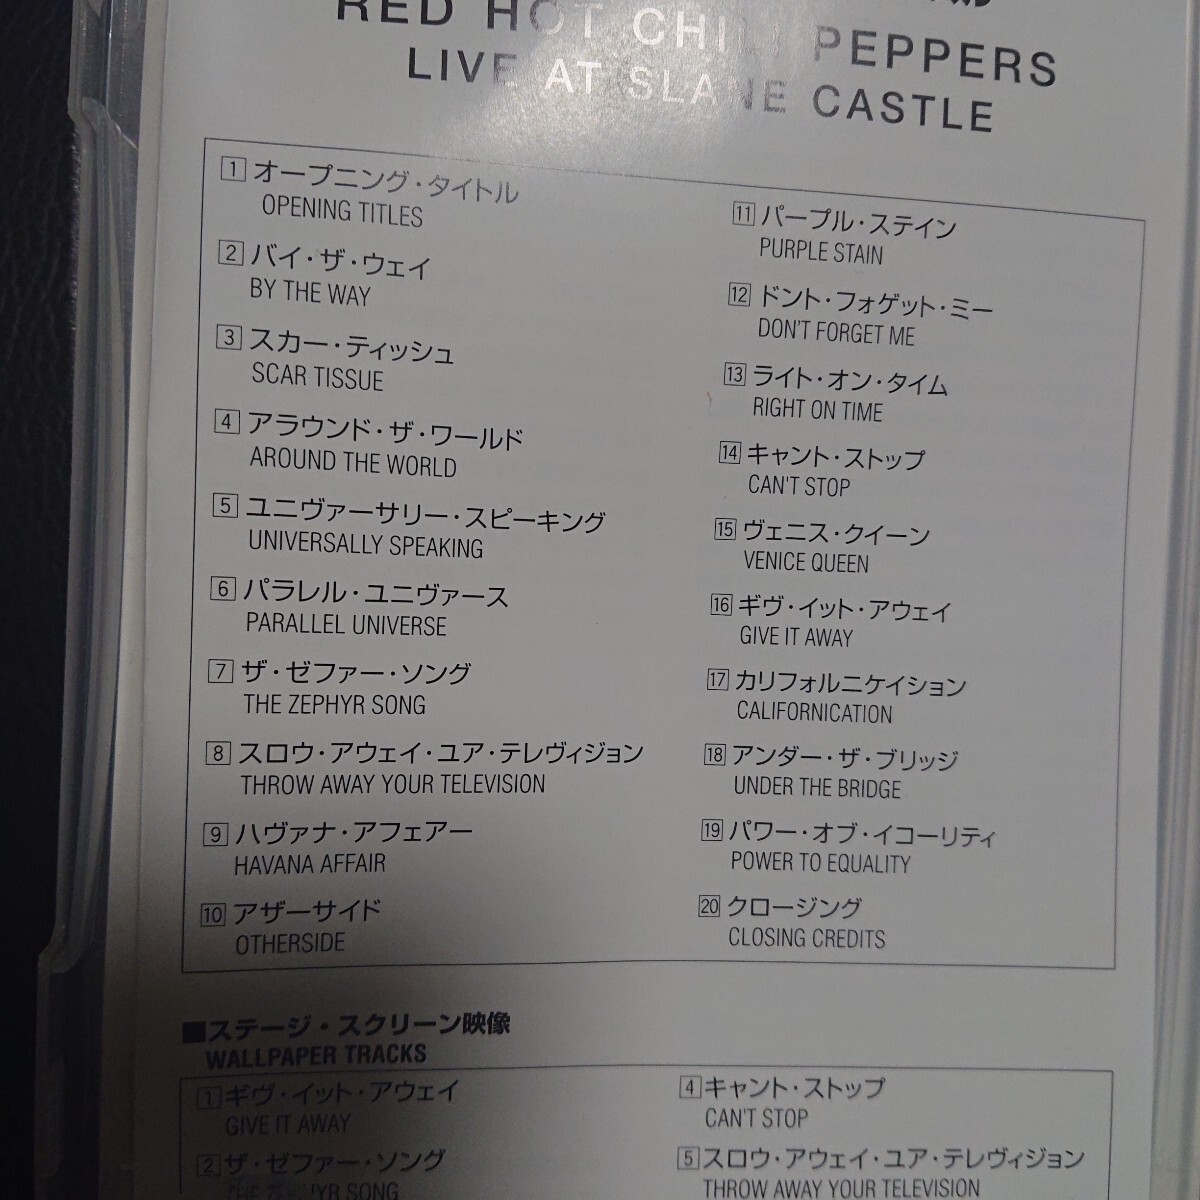 RED HOT CHILI PEPPERS
LIVE AT SLANE CASTLE
1 オープニング・タイトル
OPENING TITLES
2 バイ・ザ・ウェイ
BY THE WAY
3 スカー・ティッシュ
SCAR TISSUE
4 アラウンド・ザ・ワールド
AROUND THE WORLD
5 ユニヴァーサリー・スピーキング
UNIVERSALLY SPEAKING
6 パラレル・ユニヴァース
PARALLEL UNIVERSE
7 ザ・ゼファー・ソング
THE ZEPHYR SONG
8 スロウ・アウェイ・ユア・テレヴィジョン
THROW AWAY YOUR TELEVISION
9 ハヴァナ・アフェアー
HAVANA AFFAIR
10 アザーサイド
OTHERSIDE
11 パープル・ステイン
PURPLE STAIN
12 ドント・フォゲット・ミー
DON'T FORGET ME
13 ライト・オン・タイム
RIGHT ON TIME
14 キャント・ストップ
CAN'T STOP
15 ヴェニス・クイーン
VENICE QUEEN
16 ギヴ・イット・アウェイ
GIVE IT AWAY
17 カリフォルニケイション
CALIFORNICATION
18 アンダー・ザ・ブリッジ
UNDER THE BRIDGE
19 パワー・オブ・イコーリティ
POWER TO EQUALITY
20 クロージング
CLOSING CREDITS
■ステージ・スクリーン映像
WALLPAPER TRACKS
1 ギヴ・イット・アウェイ
GIVE IT AWAY
2 ザ・ゼファー・ソング
THE ZEPHYR SONG
4 キャント・ストップ
CAN'T STOP
5 スロウ・アウェイ・ユア・テレヴィジョン
THROW AWAY YOUR TELEVISION